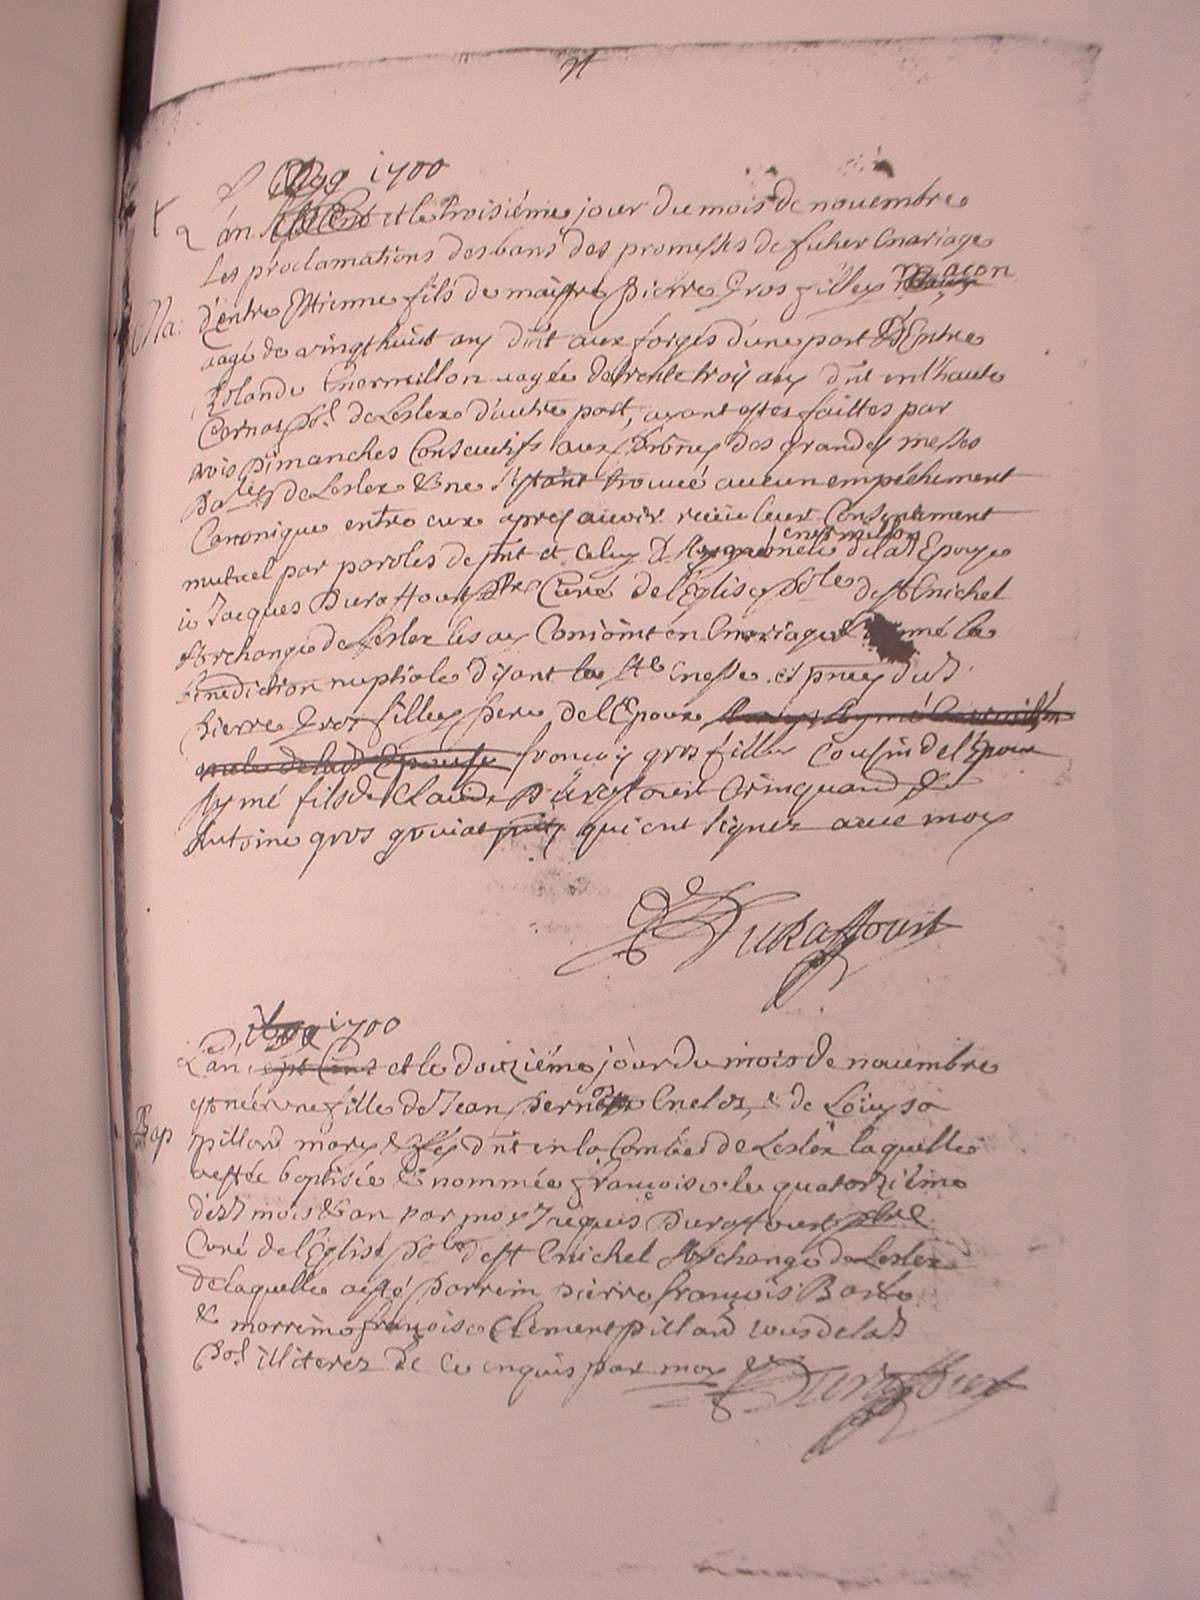 1700
L'an et le troisiéme jour du mois de nouembre
Les proclamations des bans des promesses de futur mariage
Ma: d'entre Etienne fils de maistre Pierre Gros fillex maçon
aagé de vingt huict ans d'nt aux forges d'une part & D'Entre
Rolande Mermillon aagée de trente trois ans d'nt en l'haute
Cornaz psse de Leslex d'autre part, ayant estes faittes par
trois Dimanches Consecutifs aux prônes des grandes messes
de Leslex & ne s'estant trouué aucun empéchement
Canonique entre eux apres auoir receu leur Consentement
mermillon
mutuel par paroles de pnt et celuy d' de lad Epouse
ie Jacques Duraffourt ptre Curé de l'Eglise pole de st Michel
Archange de Leslex les ay Conioint en mariage donné la
Bénediction nuptiale disant la ste messe es pnces dud
Pierre Gros fillex pere de l'Epoux
françois gros fillex Cousin de l'Epoux
Aymé fils de Claude Duraffour Crinquand &
Antoine gros goriat qui ont signez auec moy
J Duraffourt
1700
L'an et le douziéme jour du mois de nouembre
est née vne fille de Jean Meloz, & de Loüyse
Bap pillard mariés d'nt en la Combe de Leslex laquelle
a esté baptisée & nommée françoise le quatorziéme
desd mois & an par moy Jacques Duraffourt ptre
Curé de l'Eglise pole de st Michel Archange de Leslex
de laquelle a esté parrein Pierre françois
& marreine françoise Clement pillard tous de lad
psse illiterez de ce enquis par moy
J Duraffourt